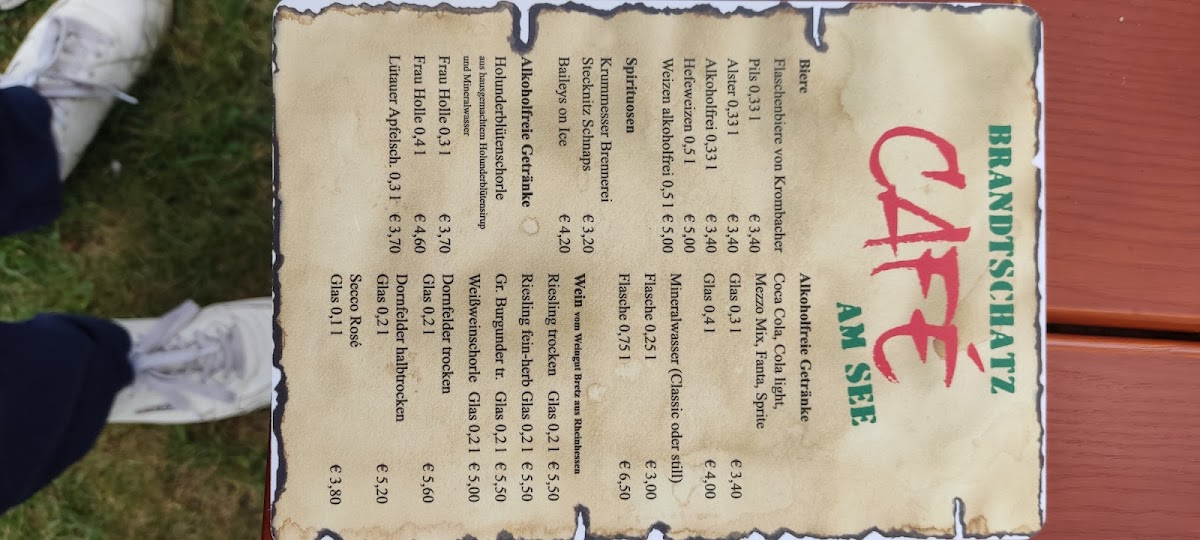 BRANDTSCHATZ
CAFÉ
AM SEE
Biere
Flaschenbiere von Krombacher
Pils 0,33 l € 3,40
Alster 0,33 l € 3,40
Alkoholfrei 0,33 l € 3,40
Hefeweizen 0,5 l € 5,00
Weizen alkoholfrei 0,5 l € 5,00
Spirituosen
Krummesser Brennerei
Stecknitz Schnaps € 3,20
Baileys on Ice € 4,20
Alkoholfreie Getränke
Holunderblütenschorle
aus hausgemachtem Holunderblütensirup
und Mineralwasser
Frau Holle 0,3 l € 3,70
Frau Holle 0,4 l € 4,60
Lütauer Apfelsch. 0,3 l € 3,70
Alkoholfreie Getränke
Coca Cola, Cola light,
Mezzo Mix, Fanta, Sprite
Glas 0,3 l € 3,40
Glas 0,4 l € 4,00
Mineralwasser (Classic oder still)
Flasche 0,25 l € 3,00
Flasche 0,75 l € 6,50
Wein vom Weingut Bretz aus Rheinhessen
Riesling trocken Glas 0,2 l € 5,50
Riesling fein-herb Glas 0,2 l € 5,50
Gr. Burgunder tr. Glas 0,2 l € 5,50
Weißweinschorle Glas 0,2 l € 5,00
Dornfelder trocken
Glas 0,2 l € 5,60
Dornfelder halbtrocken
Glas 0,2 l € 5,20
Secco Rosé
Glas 0,1 l € 3,80